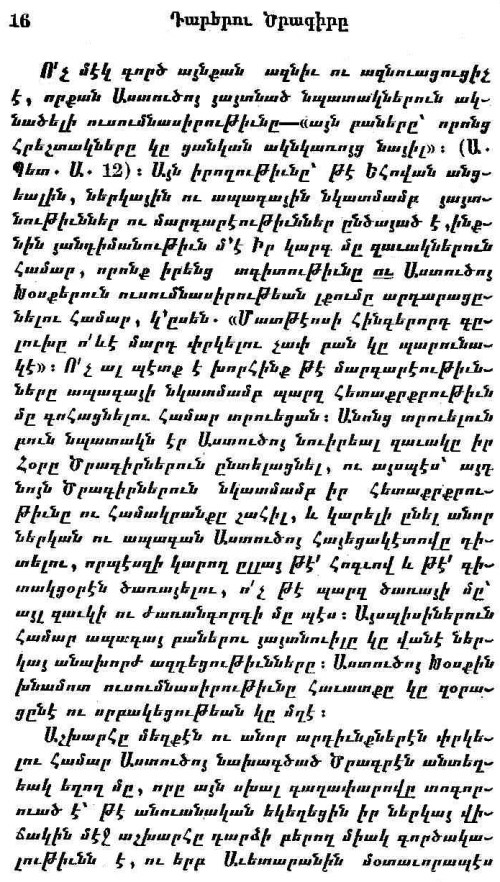 16 Դարերու Ծրագիրը
Ո՛չ մէկ գործ այնքան ազնիւ ու ազնուացուցիչ
է, որքան Աստուծոյ յայտնած նպատակներուն ակ-
նածելի ուսումնասիրութիւնը—«այն բաները՝ որոնց
Հրեշտակները կը ցանկան ակնկառոյց նայիլ»։ (Ա.
Պետ. Ա. 12)։ Այն իրողութիւնը՝ թէ Եհովան անց-
եալին, ներկային ու ապագային նկատմամբ յայտ-
նութիւններ ու մարգարէութիւններ ընծայած է, ինք-
նին յանդիմանութիւն մ՚է Իր կարգ մը զաւակներուն
համար, որոնք իրենց ազիտութիւնը ու Աստուծոյ
Խօսքերուն ուսումնասիրութեան լքումը արդարացը-
նելու համար, կ՚ըսեն. «Մատթէոսի Հինգերորդ գը-
լուխը ո՛ևէ մարդ փրկելու չափ բան կը պարունա-
կէ»։ Ո՛չ ալ պէտք է խորհինք թէ մարգարէութիւն-
ները ապագայի նկատմամբ պարզ հետաքրքրութիւն
մը գոհացնելու համար տրուեցան։ Անոնց տրուելուն
բուն նպատակն էր Աստուծոյ նուիրեալ զաւակը իր
Հօրը Ծրագիրներուն ընտելացնել, ու այսպէս՝ այդ
նոյն Ծրագիրներուն նկատմամբ իր հետաքրքրու-
թիւնը ու համակրանքը շահիլ, և կարելի ընել անոր
ներկան ու ապագան Աստուծոյ հայեցակէտովը դի-
տելու, որպէսզի կարող ըլլայ թէ՛ հոգւով և թէ՛ գի-
տակցօրէն ծառայելու, ո՛չ թէ պարզ ծառայի մը՝
այլ զաւկի ու ժառանգորդի մը պէս։ Այսպիսիներուն
համար ապագայ բաներու յայտնուիլը կը վանէ ներ-
կայ անախորժ ազդեցութիւնները։ Աստուծոյ Խօսքին
խնամոտ ուսումնասիրութիւնը հաւատքը կը զօրա-
ցընէ ու սրբակեցութեան կը մղէ։
Աշխարհը մեղքէն ու անոր արդիւնքներէն փրկե-
լու համար Աստուծոյ նախագծած Ծրագրէն անտեղ-
եակ եղող մը, որը այն սխալ գաղափարովը տոգոր-
ուած է՝ թէ անուանական եկեղեցին իր ներկայ վի-
ճակին մէջ աշխարհը դարձի բերող միակ գործակա-
լութիւնն է, ու երբ Աւետարանին մօտաւորապէս